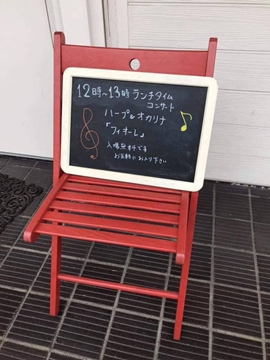 12時~13時 ランチタイム
コンサート
ハープ&オカリナ
「フィオーレ」
入場無料です
お気軽にお入り下さい